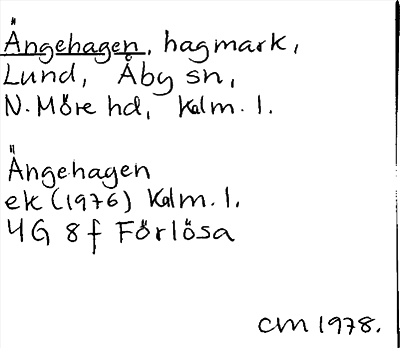 Ängehagen, hagmark,
Lund, Åby sn,
N. Möre hd, Kalm. l.
Ängehagen
ek (1976) Kalm. l.
4G 8f Förlösa
CM 1978.